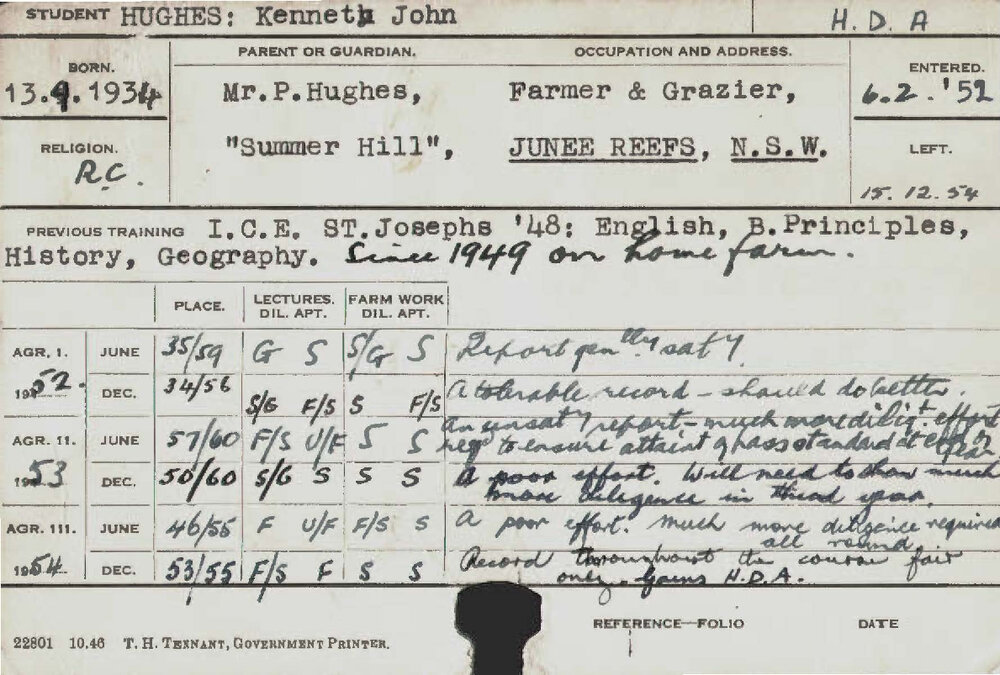 STUDENT HUGHES: Kenneth John H. D. A
PARENT OR GUARDIAN. OCCUPATION AND ADDRESS.
BORN. ENTERED.
13.9.1934 Mr.P.Hughes, Farmer & Grazier, 6.2.'52
RELIGION. "Summer Hill", JUNEE REEFS, N.S.W. LEFT.
R.C. 15.12.54
PREVIOUS TRAINING I.C.E. ST.Josephs '48: English, B.Principles,
History, Geography. Since 1949 on home farm.
PLACE. LECTURES. FARM WORK
DIL. APT. DIL. APT.
AGR. I. JUNE 35/59 G S S/G S Report genlly saty
1952. DEC. 34/56 S/G F/S S F/S A tolerable record - should do better.
AGR. II. JUNE 57/60 F/S U/F S S An unsaty report - much more diligt effort
req to ensure attaint of pass standard at end of year
1953 DEC. 50/60 S/G S S S A poor effort. Will need to show much
more diligence in third year.
AGR. III. JUNE 46/55 F U/F F/S S A poor effort. Much more diligence required
all round
1954 DEC. 53/55 F/S F S S Record throughout the course fair
only. Gains H.D.A.
REFERENCE—FOLIO DATE
22801 10.46 T. H. TENNANT, GOVERNMENT PRINTER.